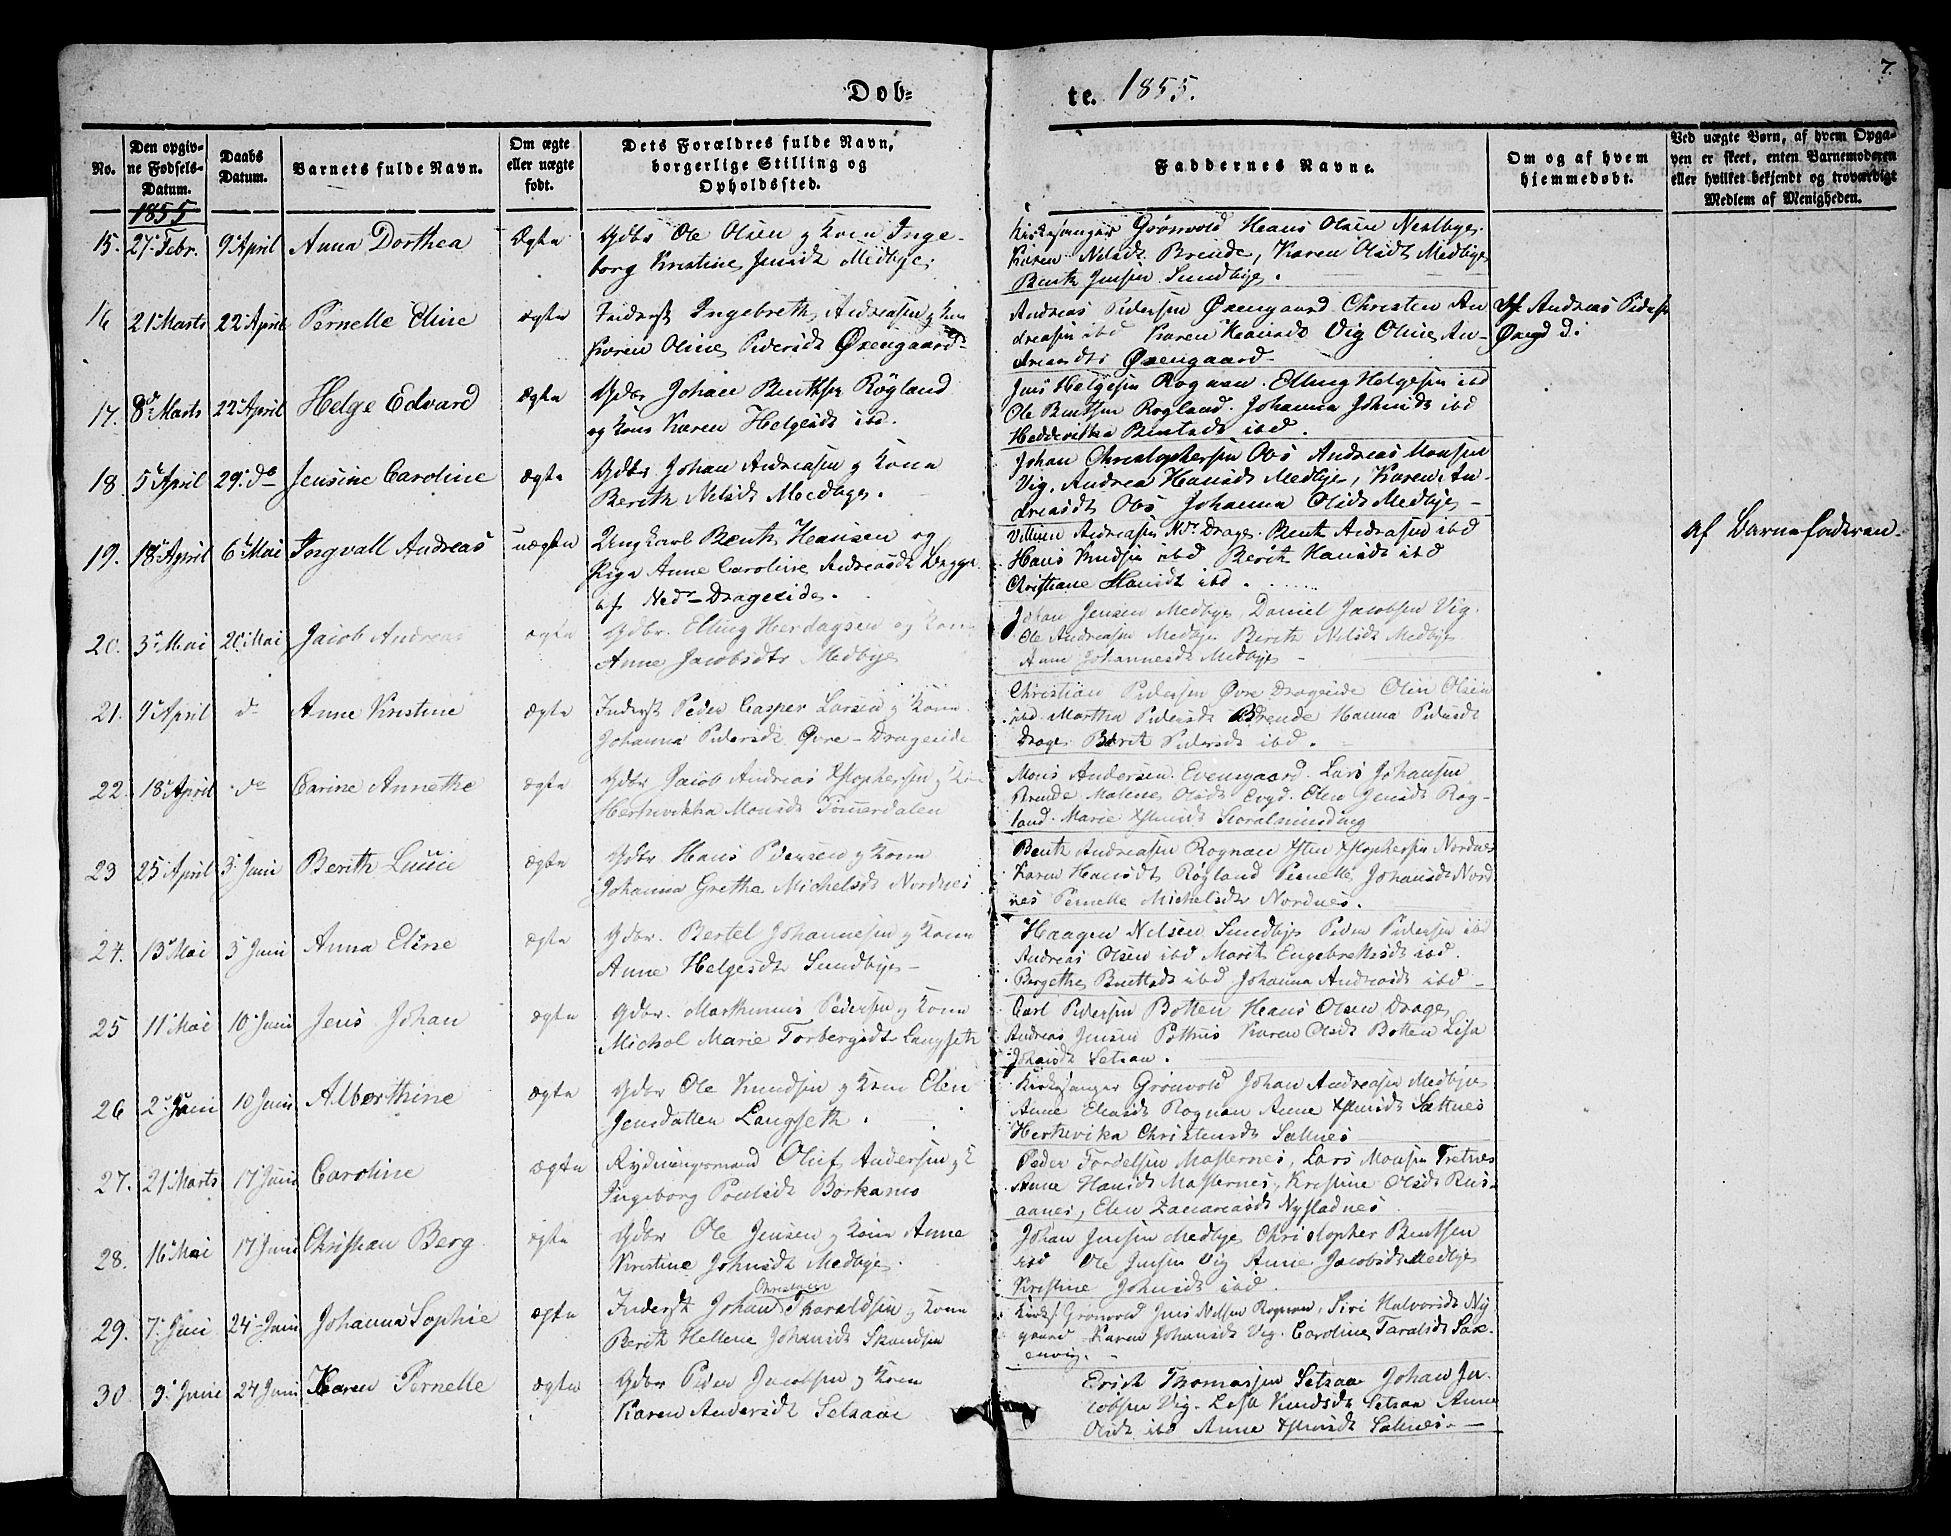 Døb=
te. 1855.
7.
No.
Den opgiv-
ne Fødsels-
Datum.
Daabs
Datum.
Barnets fulde Navn.
Om ægte
eller uægte
født.
Dets Forældres fulde Navn,
borgerlige Stilling og
Opholdssted.
Faddernes Navne.
Om og af hvem
hjemmedøbt.
Ved uægte Børn, af hvem Opga-
ven er skeet, enten Barnemoderen
eller hvilket bekjendt og troværdigt
Medlem af Menigheden.
1855
15. 27. Febr. 9 April Anna Dorthea Ægte Gdbr Ole Olsen og Kone Inge-
borg Kristine Jensdt Medbye.
Kirkesanger Grønvold Hans Olsen Medbye.
Karen Nelsdt Brende, Karen Olsdt Medbye
Benth Jensen Sundbye.
16 21 Marts 22 April Pernelle Eline ægte Inderst Ingebreth Andreasen og Kone
Karen Oline Pedersdt Øxengaard
Andreas Pedersen Øxengaard Christen An
dreasen ibd Karen Hansdt Vig Oline An-
dreasdt Øxengaard
Af Andreas Peders
Øxngd
17. 8 Marts 22 April Helge Edvard ægte Gdbr Johan Benthsen Røgland
og Kone Karen Helgesdt ibd.
Jens Helgesen Rognan. Elling Helgesen ibd
Ole Bentsen Røgland. Johanna Johnsdt ibd
Hedderikka Bentsdt ibd.
18 5 April 29 do Jensine Caroline ægte Gdbr Johan Andreasen og Kone
Berith Nelsdt Medbye.
Johan Christophersen Obs Andreas Monsen
Vig. Andrea Hansdt Medbye, Karen An-
dreasdt Obs Johanna Olsdt Medbye
19. 18 April 6 Mai Ingvall Andreas uægte Ungkarl Benth Hansen og
Pige Anne Caroline Andreasdt Begge
af Ned-Drageide.
Andreasen Ndr Drage. Benth Andreasen ibd
Hans Knudsen ibd Berith Hansdt ibd
Christiane Hansdt ibd.
af Barnefaderen.
20. 3 Mai 20 Mai Jacob Andreas ægte Gdbr. Elling Herdagsen og Kone
Anne Jacobsdtr Medbye
Johan Jensen Medbye, Daniel Jacobsen Vig.
Ole Andreasen Medbye Berith Nelsdt Medbye
Anne Johannesdt Medbye
21. 9 April do Anne Kristine ægte Inderst Peder Casper Larsen og Kone
Johanna Pedersdt Øvre-Drageide
Christian Pedersen Øvre Drageide Olin Olsen
ibd. Martha Pedersdt Brende Hanna Pedersdt
Drage Berit Pedersdt ibd.
22. 18 April do Carine Annethe ægte Gdbr Jacob Andreas Xstophersen og Kone
Herthvikka Monsdt Tømmerdalen
Mons Andersen. Evensgaard. Lars Johansen
Brende Malene Olsdt Evgd. Elen Jensdt Røg-
land. Marie Storalmending
23 25 April 3 Juni Berith Lucie ægte Gdbr. Hans Pedersen og Kone
Johanna Grethe Michelsdt Nordnes
Benth Andreasen Rognan Xstophersen Nordnes
Karen Hansdt Røgland Pernelle Johansdt Nord
nes Pernelle Michelsdt Nordnes.
24. 13 Mai 3 Juni Anna Eline ægte Gdbr. Bertel Johannesen og Kone
Anne Helgesdt Sundbye
Haagen Nelsen Sundbye Peder Pedersen ibd
Andreas Olsen ibd Marit Engebrethsdt ibd.
Bergethe Benthsdt ibd Johanna Andreasdt ibd
25 11 Mai 10 Juni Jens Johan ægte Gdbr. Marthinus Pedersen og Kone
Michol Marie Torbergsdt Langseth
Carl Pedersen Botten Hans Olsen Drage
Andreas Jensen Pothus Karen Olsdt Botten Lisa
Johansdt Setsaa.
26 2 Juni 10 Juni Alberthine ægte Gdbr Ole Knudsen og Kone Elen
Jensdatter Langseth.
Kirkesanger Grønvold Johan Andreasen Medbye
Anne Rognan Anne Saltnes
Hertevika Christensdt Saltnes
27. 21 Marts 17 Juni Caroline ægte Rydningsmand Oluf Andersen og K
Ingeborg Poulsdt Borkamo
Peder Tordelsen Masternes, Lars Monsen Tretnes
Anne Hansdt Masternes, Kristine Olsdt Rus-
aanes, Elen Zacariasdt
28. 16 Mai 17 Juni Christian Berg ægte Gdbr Ole Jensen og Kone Anne
Kristine Johnsdt Medbye.
Johan Jensen Medbye Christopher Bentsen
ibd Ole Jensen Vig Anne Jacobsdt Medbye
Kristine Johnsdt ibd
29. 7 Juni 24 Juni Johanna Sophie ægte Inderst Johan Christian Tharaldsen og Kone
Berith Hellene Johansdt
Kirks. Grønvold Jens Nelsen Rognan, Siri Halvorsdt Ny
gaard Karen Johansdt Vig. Caroline Taralsdt Sax-
envig.
30. 9 Juni 24 Juni Karen Pernelle ægte Gdbr Peder Jacobsen og Kone
Karen Andersdt Setsaa
Erich Thomassen Setsaa Johan Ja-
cobsen Vig. Lisa Knudsdt Setsaa Anne
Olsdt ibd Anne Saltnes.